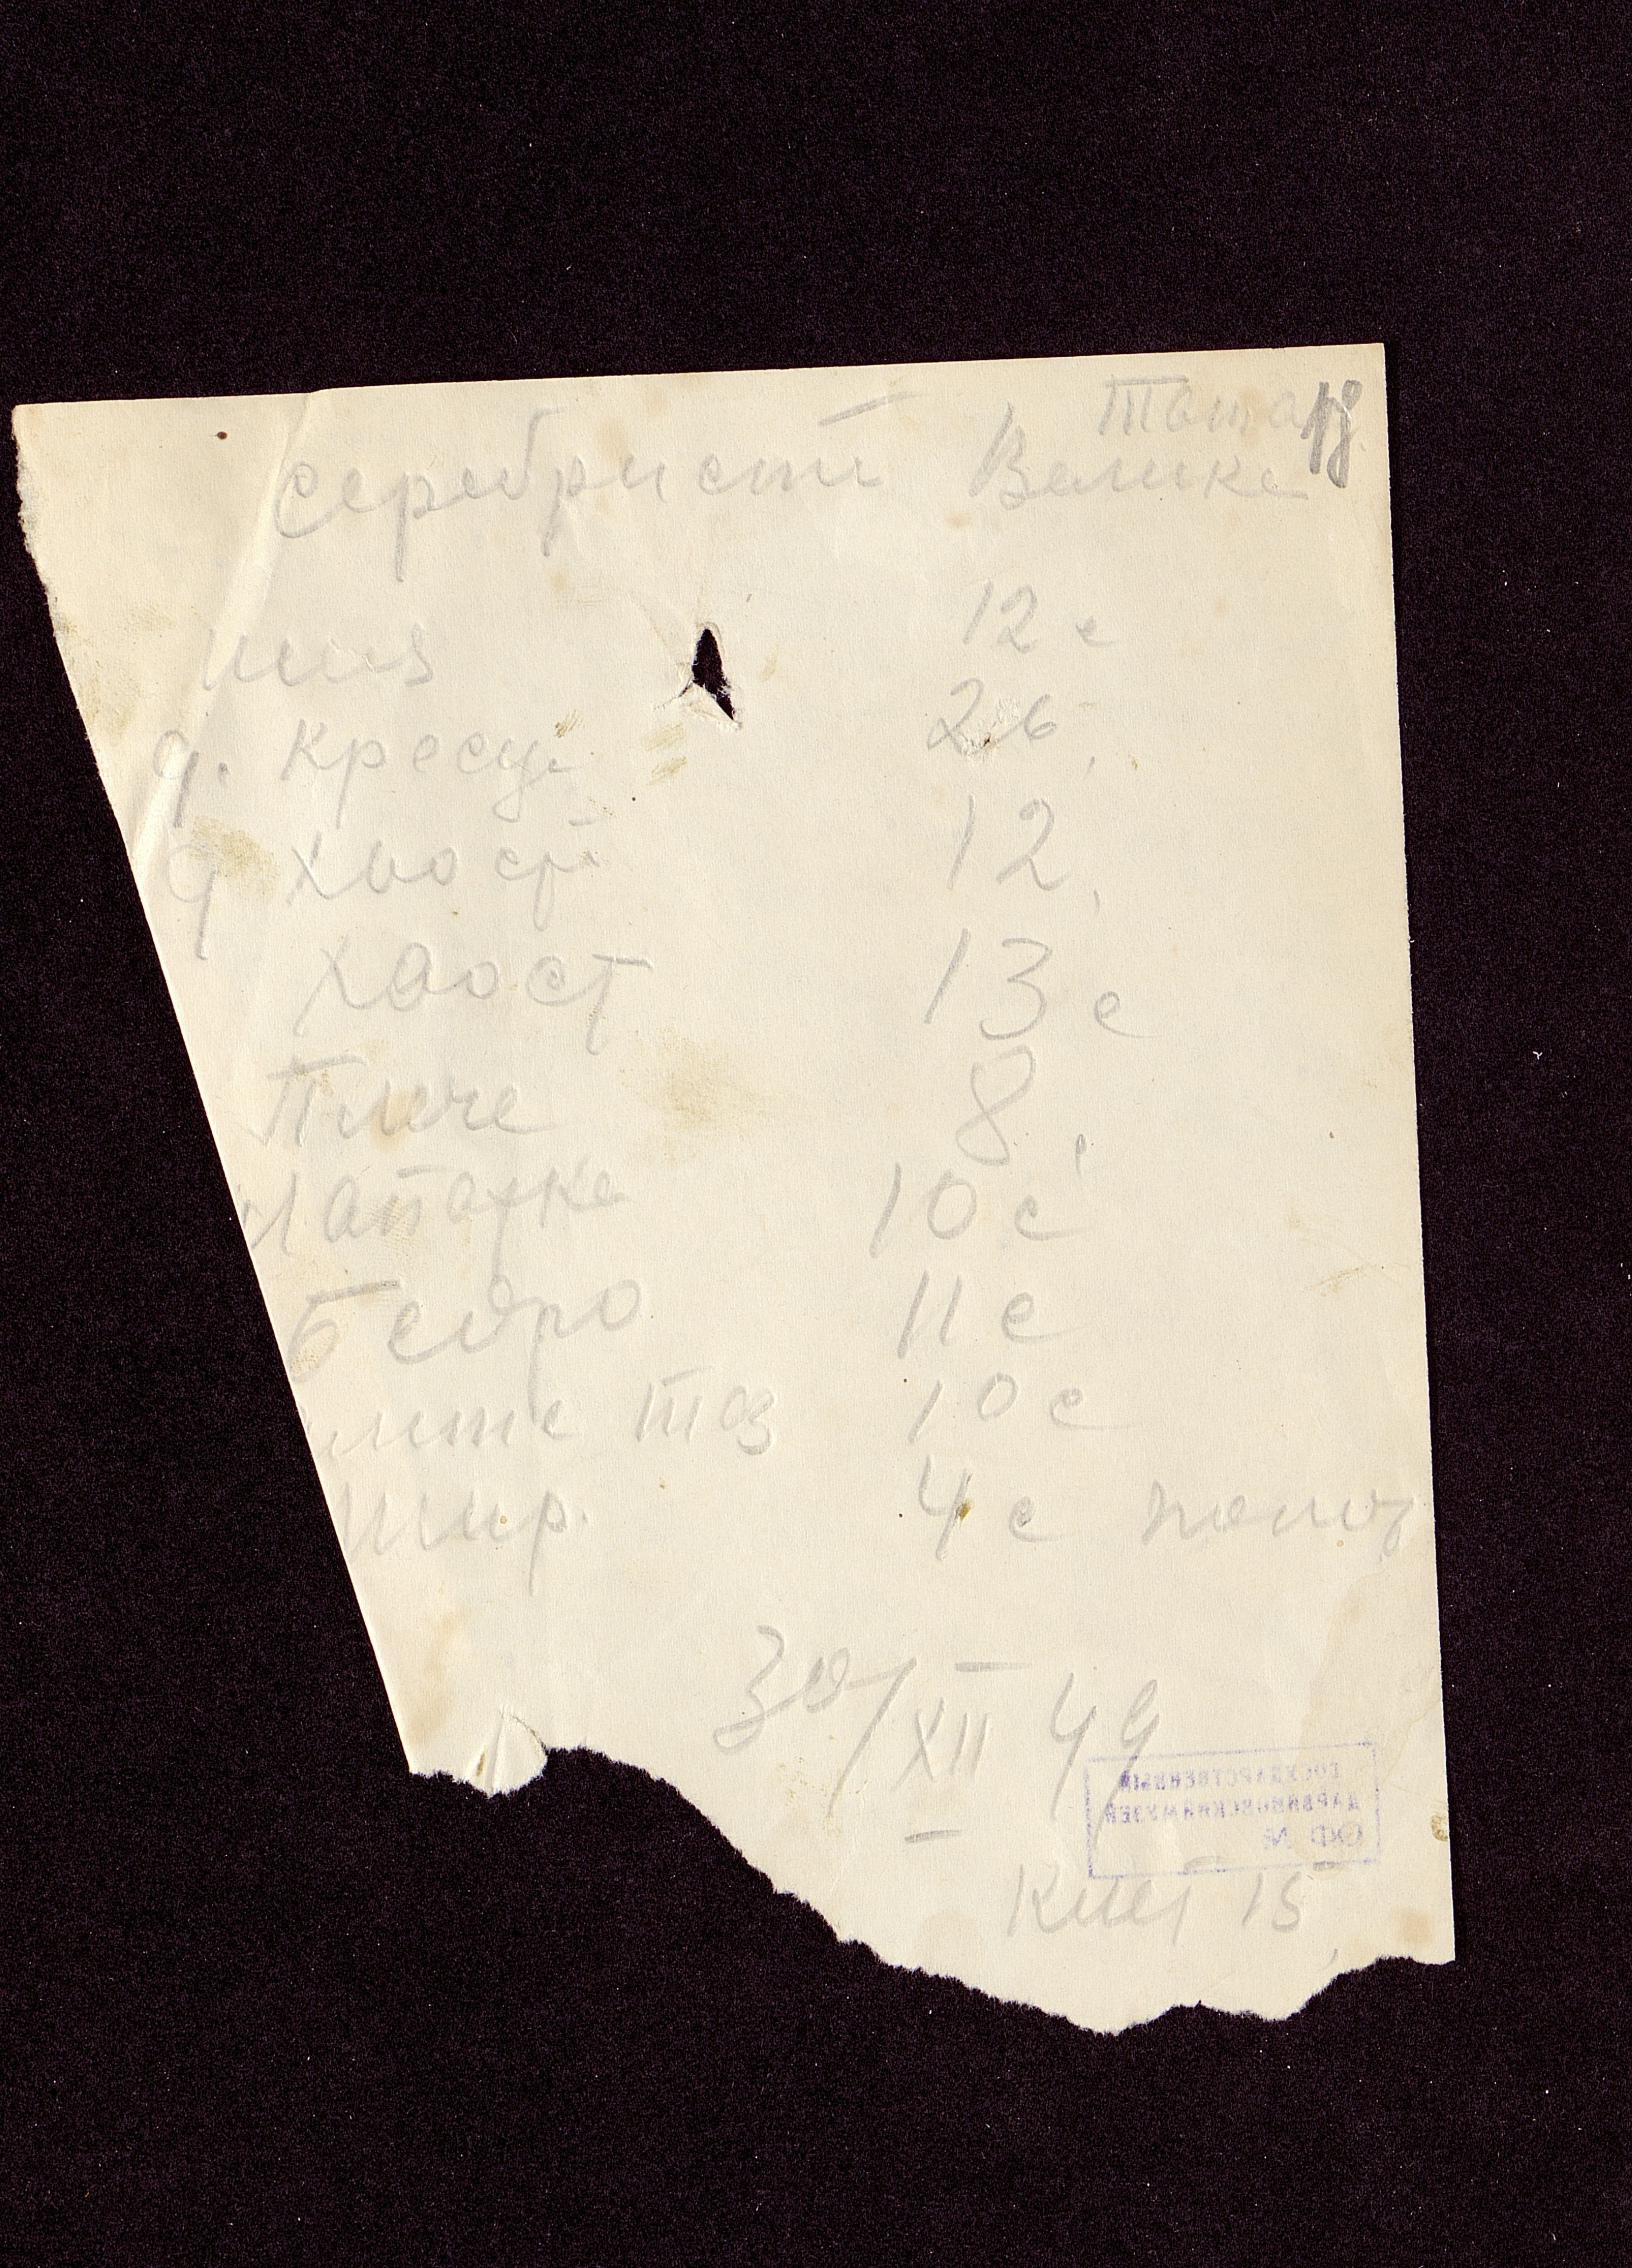 18
серебрист Велике
шия 12 с
д. кресц 26,
д хвост 12,
хвост 13 с
Плече 8,
Лапатка 10 с
Бедро 11 с
таз 10 с
Шир. 4 с
30/XII 49
ГОСУДАРСТВЕННЫЙ
ДАРВИНОВСКИЙ МУЗЕЙ
ОФ №
15